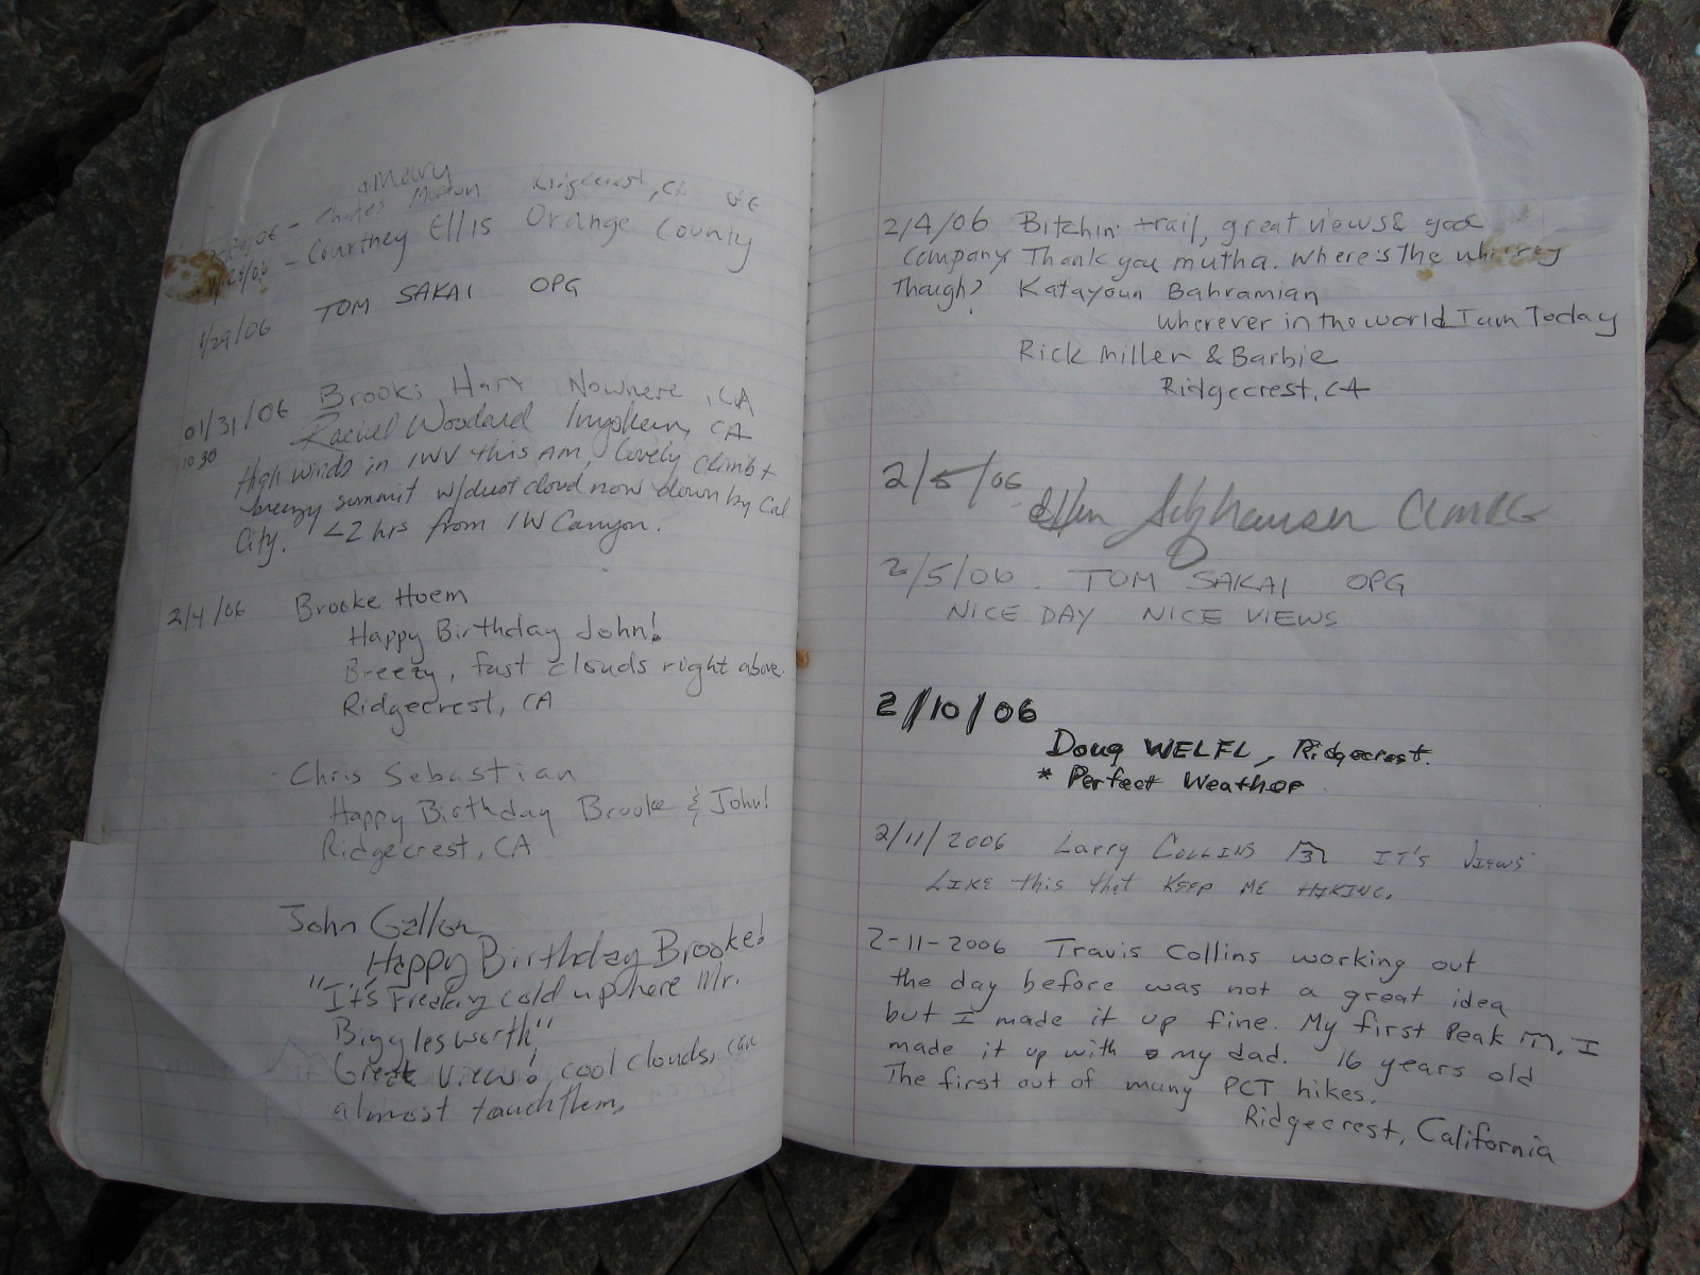 & Mary
Charles Ridgecrest, CA
/06 - Courtney Ellis Orange County
1/29/06 TOM SAKAI OPG
01/31/06 Brooks Hart Nowhere, CA
10:30 Rachel Woodard Inyokern, CA
High winds in IWV this AM, lovely climb +
breezy summit w/dust cloud now down by Cal
City. <2 hrs from IW Canyon.
2/4/06 Brooke Huem
Happy Birthday John!
Breezy, fast clouds right above
Ridgecrest, CA
Chris Sebastian
Happy Birthday Brooke & John!
Ridgecrest, CA
John Gallon
Happy Birthday Brooke!
"It's Freaking cold up here Mr.
Bigglesworth"
Great view!, cool clouds, can
almost touch them.
2/4/06 Bitchin' trail, great views & good
company Thank you mutha. Where's the
Though? Katayoun Bahramian
wherever in the world I am Today
Rick Miller & Barbie
Ridgecrest, CA
2/5/06
2/5/06. TOM SAKAI OPG
NICE DAY NICE VIEWS
2/10/06
Doug WELFL, Ridgecrest.
* Perfect Weather
2/11/2006 Larry COLLINS IT'S VIEWS
LIKE this that KEEP ME HIKING.
2-11-2006 Travis Collins working out
the day before was not a great idea
but I made it up fine. My first Peak, I
made it up with my dad. 16 years old
The first out of many PCT hikes.
Ridgecrest, California